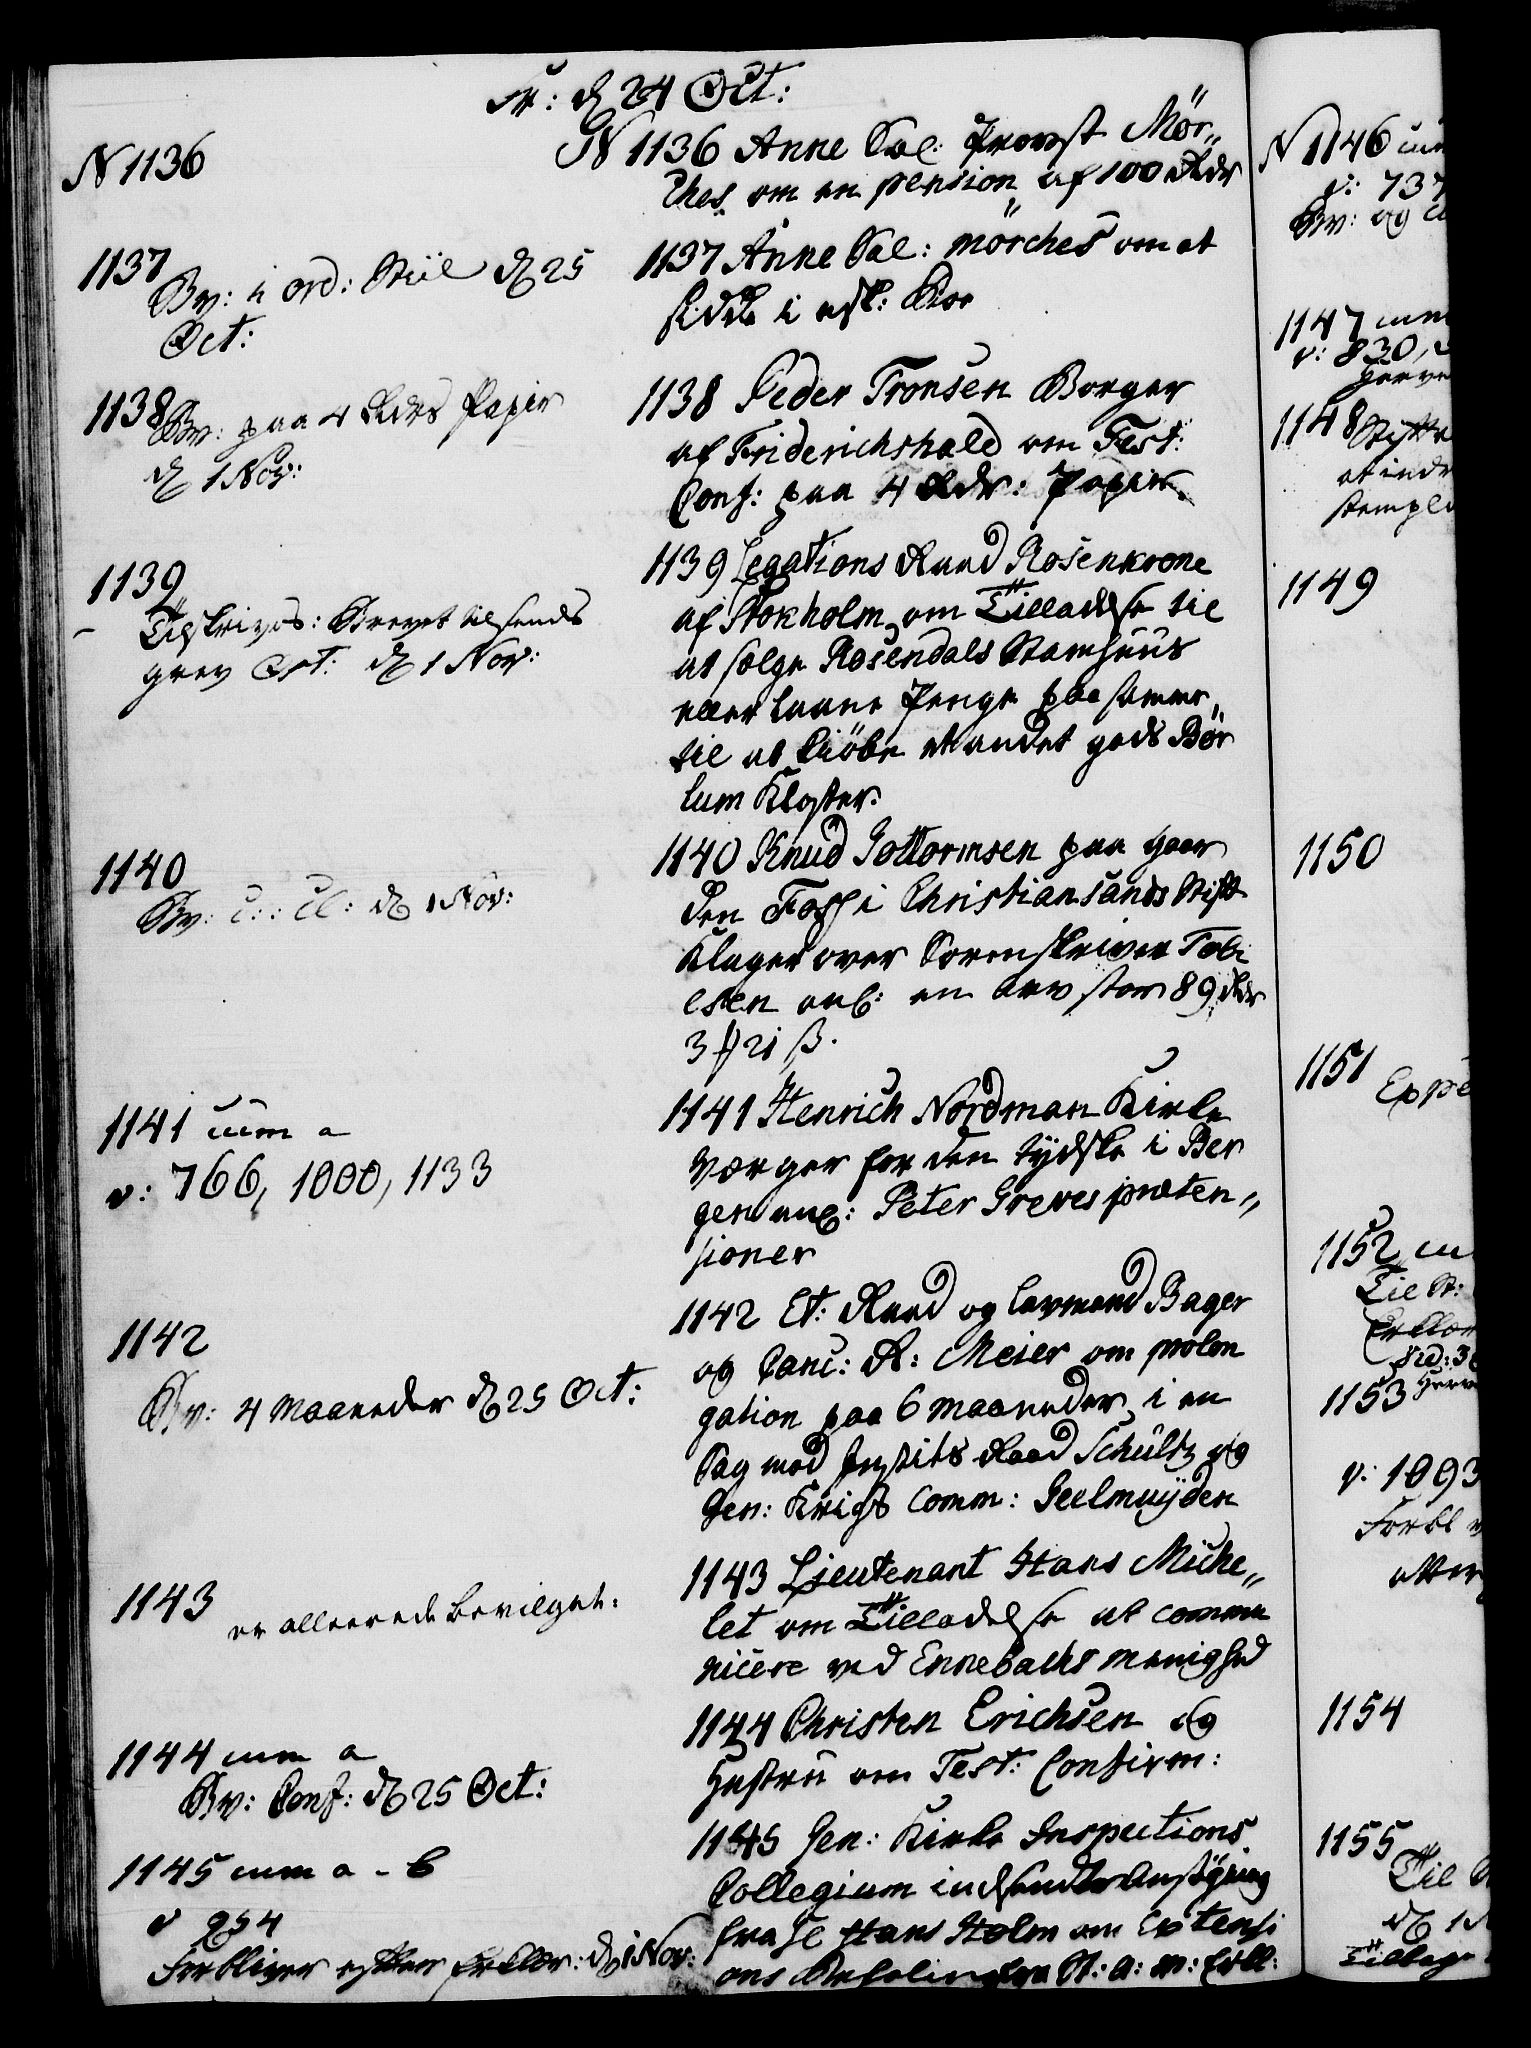 Fr: d 24 Oct:
N 1136
N 1136 Anne Sal: Provst Mör„
ches om en pension af 100 Rdr
1137
Bv: i ord: Stiil d 25
Oct:
1137 Anne Sal: mörches om at
sidde i usk: Boe
1138
Bv: paa 4 Rdrs Papir
d 1 Nov:
1138 Peder Tronsen Borger
af Friderichshald om Test:
Conf: paa 4 Rdr: Papir.
1139
Tilskrives: Brevet tilsendt
grev Ost: d 1 Nov:
1139 Legations Raad Rosenkrone
af Stokholm, om Tilladelse til
at sælge Rosendals Stamhuus
eller laane Penge paa samme,
til at kiöbe et andet gods Bör
lum Kloster.
1140
Bv: C:: Cl: d 1 Nov:
1140 Knud Gottormsen paa gaar
den Foss i Christiansands Stift
klager over Sorenskriver Tobi
esen anl: en arv stor 89 Rdr
3 ꝑ 21 ß.
1141 cum a
v: 766, 1000, 1133
1141 Henrich Nordman Kirke
værger for den tydske i Ber
gen anl: Peter Greves præten„
sioner
1142
Bv: 4 Maaneder d 25 Oct:
1142 Et: Raad og laugmand Bager
og Canc: R: Meier om prolon
gation paa 6 maaneder, i en
Sag mod Justits Raad Schultz og
Gen: Krigs Comm: Geelmuyden
1143
er allerede bevilget.
1143 Lieutenant Hans Miche„
let om Tilladelse at commu
nicere ved Ennebachs menighed
1144 cum a
Bv: Conf: d 25 Oct:
1144 Christen Erichsen og
Hustru om Test: Confirm:
1145 cum a - b
v 954
Forbliver efter Erklær: d 1 Nov:
1145 Gen: Kirke Inspections
Collegium indsendte Ansögning
fra Hl Hans Holm om Extensi
ons Befaling fra St: a: m: Coll:
N 1146 cum
v: 737
Bv: og
1147 cum
v: 830,
1148 Stift
at indr
stemple
1149
1150
1151
Expe
1152 cu
Til St:
1153
v: 1093
Forbl
1154
1155
Til
d 1 N